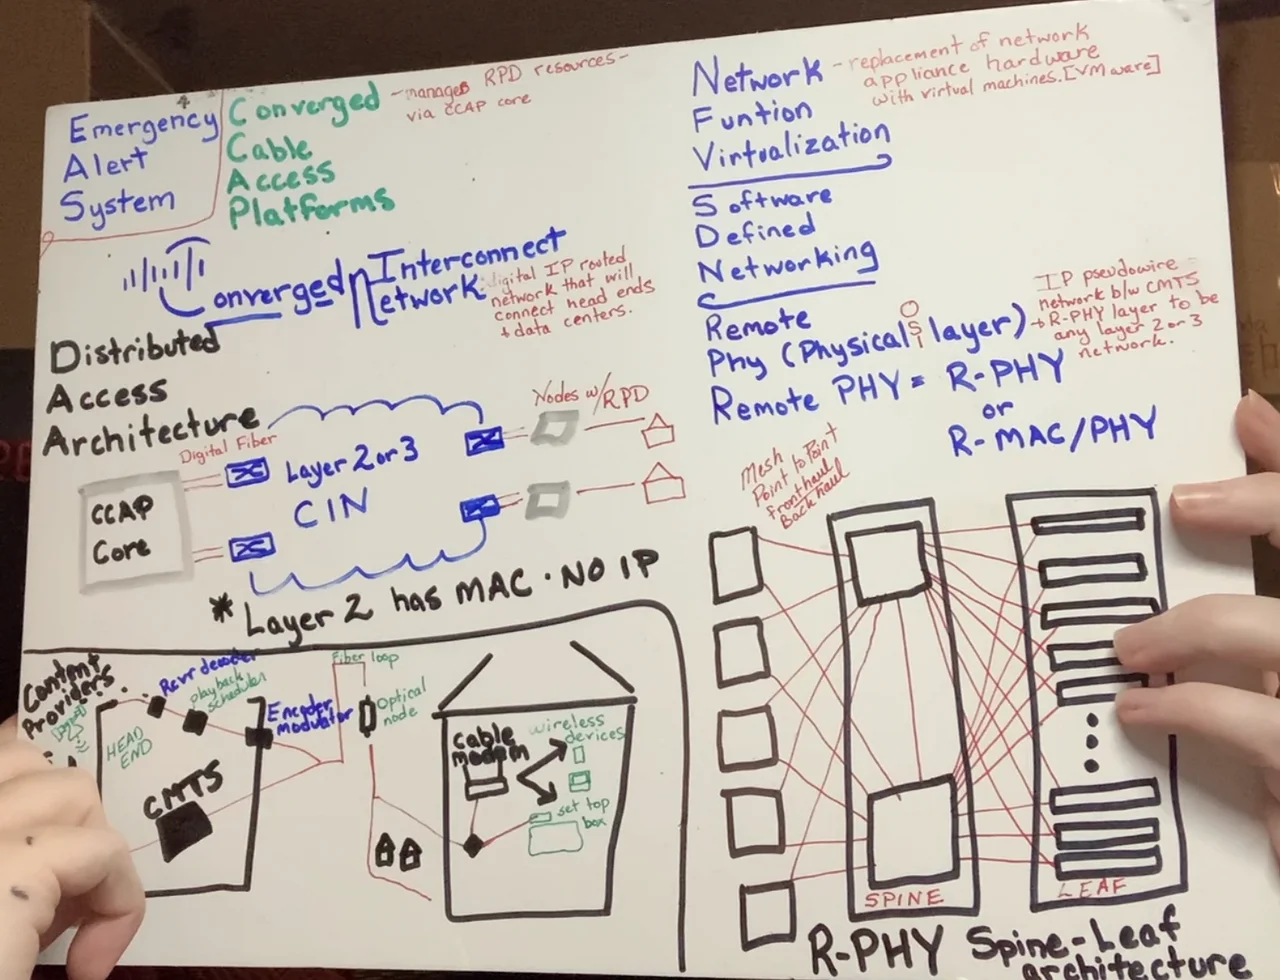 Emergency
Alert
System
Converged
Cable
Access
Platforms
-manages RPD resources-
via CCAP core
Network
Funtion
Virtualization
-replacement of network
appliance hardware
with virtual machines.[VMware]
Software
Defined
Networking
Converged Interconnect
Network
digital IP routed
network that will
connect head ends
+ data centers.
Remote
Phy (Physical layer)
OSI
Remote PHY = R-PHY
or
R-MAC/PHY
IP pseudowire
network b/w CMTS
+ R-PHY layer to be
any layer 2 or 3
network.
Distributed
Access
Architecture
Digital Fiber
Nodes w/RPD
CCAP
Core
Layer 2 or 3
CIN
* Layer 2 has MAC · NO IP
Mesh
Point to Point
fronthaul
Backhaul
SPINE
LEAF
R-PHY Spine-Leaf
architecture
Content
Providers
Rcvr decoder
playback
scheduler
HEAD
END
Encoder
modulator
Fiber loop
Optical
node
CMTS
cable
modem
wireless
devices
set top
box